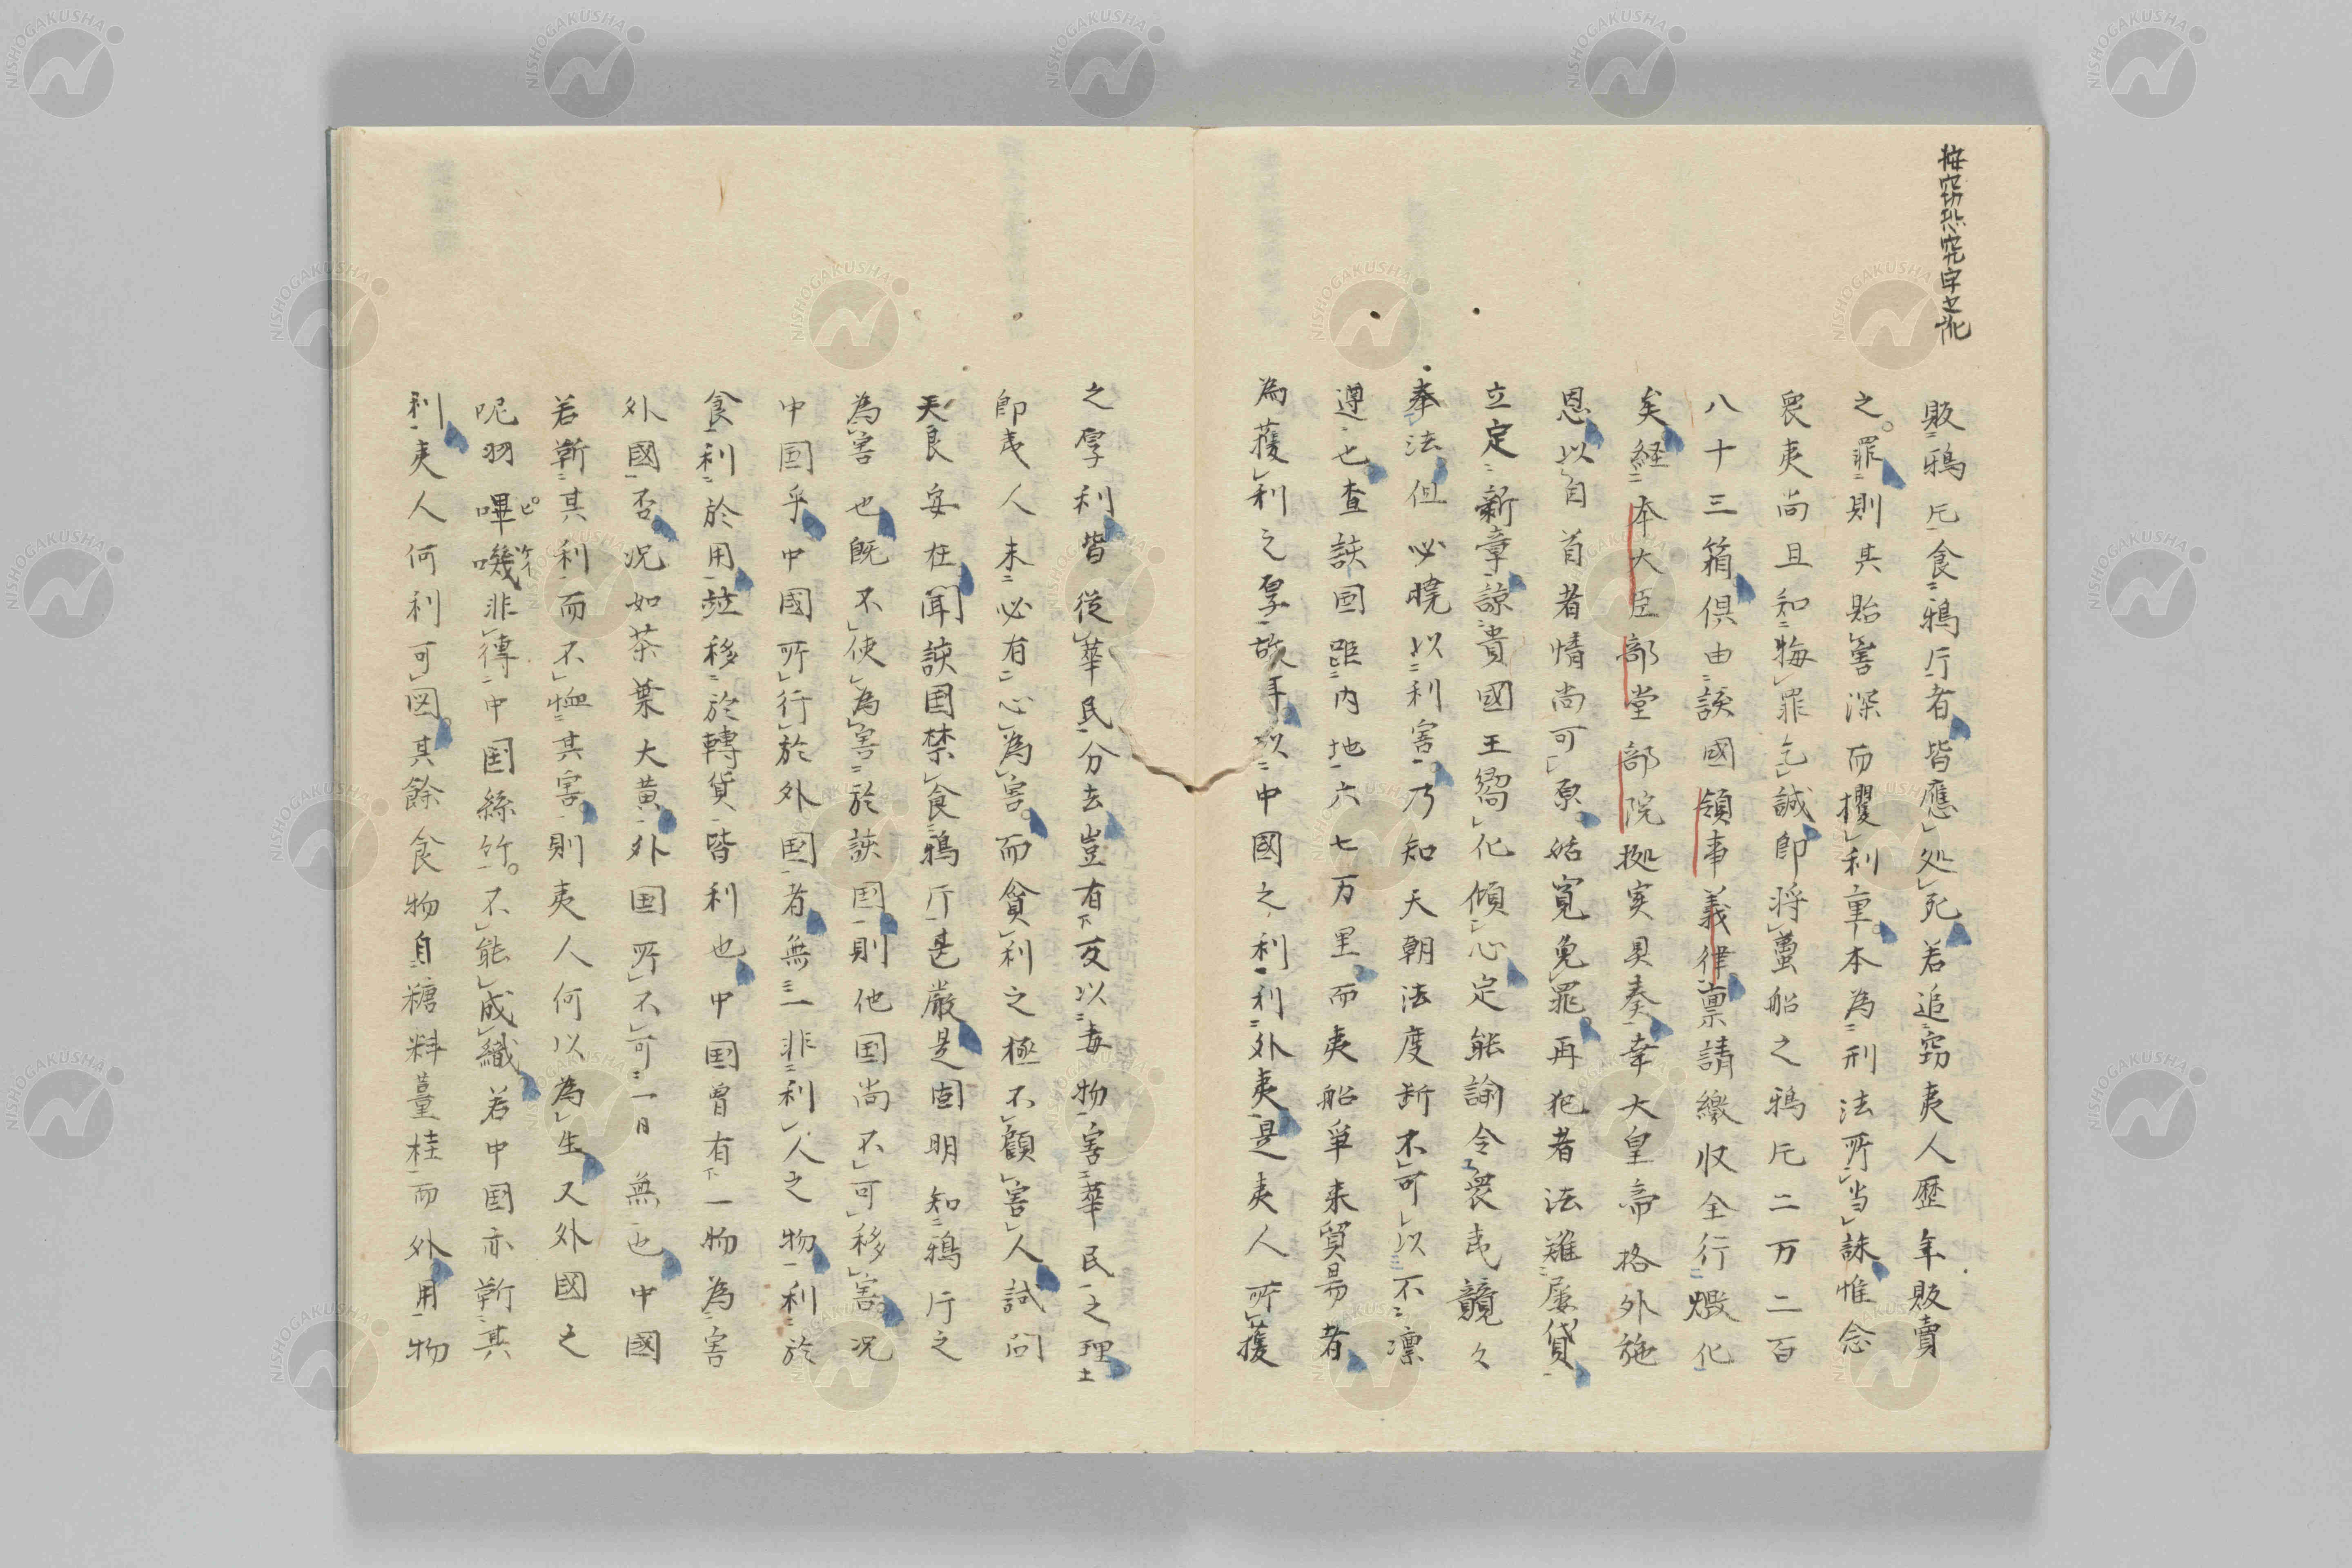 按窃恐究字之訛
販鴉片食鴉片者皆應処死若追窃夷人歴年販賣
之罪則其貽害深而攫利重本為刑法所当誅惟念
衆夷尚且知悔罪乞誠即将躉船之鴉片二万二百
八十三箱倶由該國領事義律禀請繳収全行燬化
矣経本大臣部堂部院拠実具奏幸大皇帝格外施
恩以自首者情尚可原姑寛免罪再犯者法難屡貸
立定新章諒貴國王嚮化傾心定能諭令衆夷兢々
奉法但必曉以利害乃知天朝法度断不可以不凛
遵也査該国距内地六七万里而夷船争来貿易者
為獲利之厚故耳以中國之利利外夷是夷人所獲
之厚利皆従華民分去豈有下反以毒物害華民之理上
即夷人未必有心為害而貪利之極不顧害人試問
天良安在聞該国禁食鴉片甚厳是固明知鴉片之
為害也既不使為害於該国則他国尚不可移害况
中国乎中國所行於外国者無一非利人之物利於
食利於用竝移於轉貨皆利也中国曾有下一物為害
外國否况如茶葉大黄外国所不可一日無也中國
若靳其利而不恤其害則夷人何以為生又外國之
呢羽嗶嘰非得中国絲竹不能成織若中国亦靳其
利夷人何利可図其餘食物自糖料薑桂而外用物